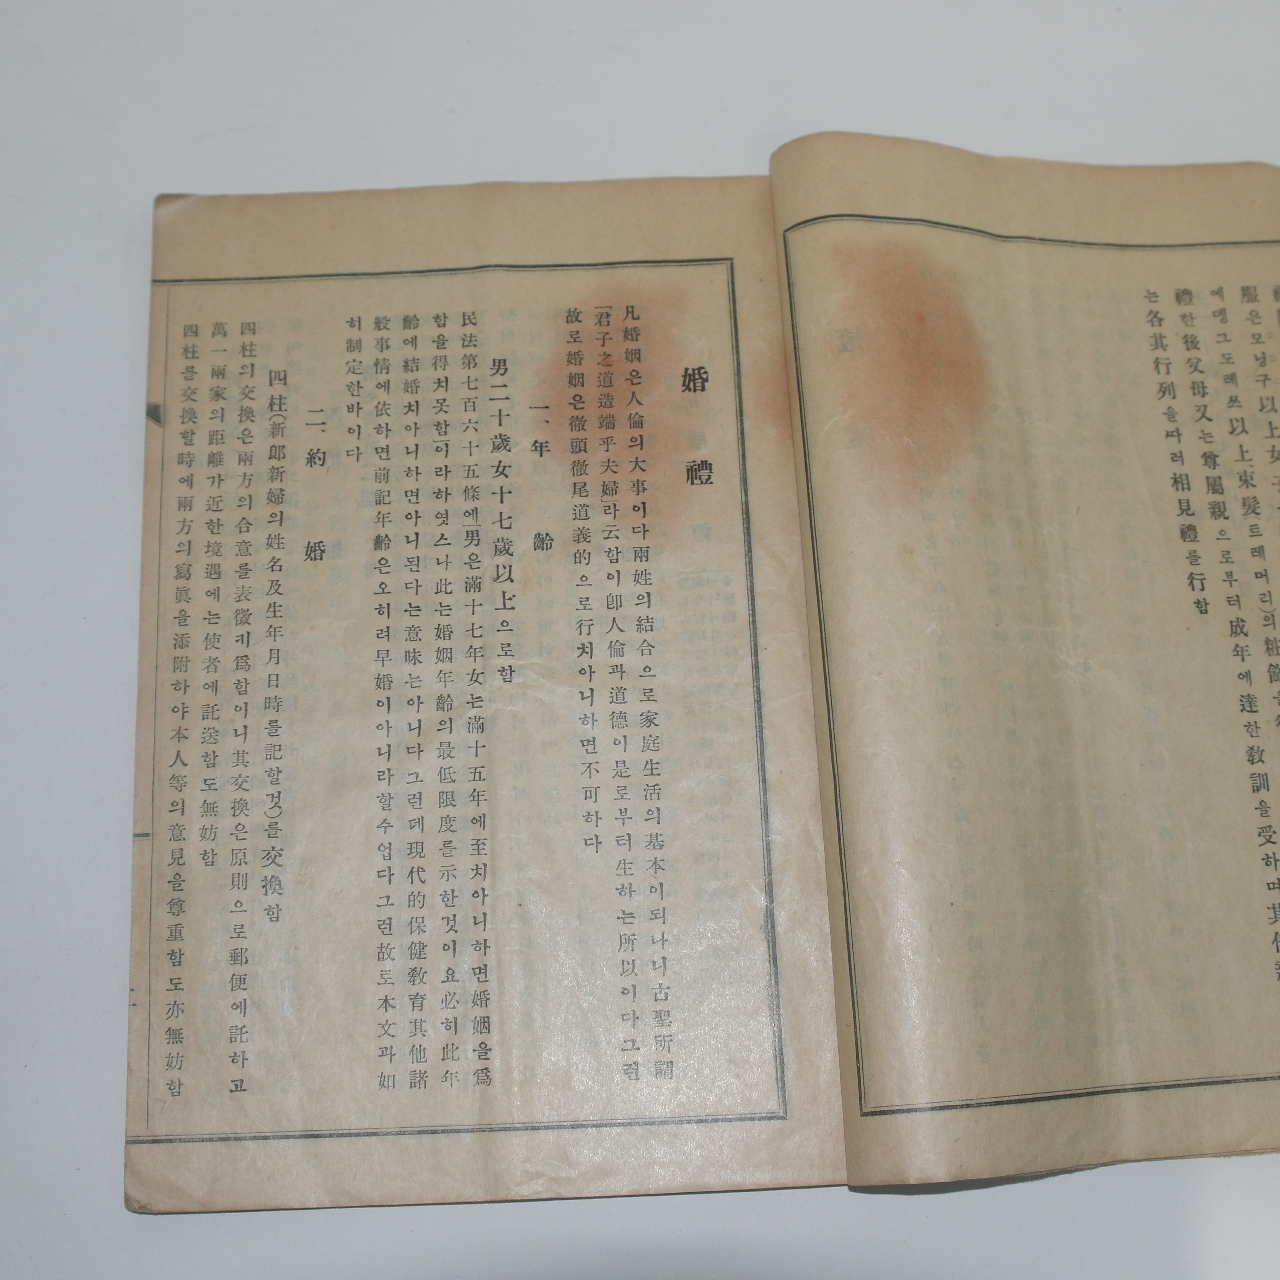 服은모닝구以上女子
에엥그도레쓰以上、束髮트레머리)의粧飾
禮한後父母又는尊屬親으로부터成年에達한敎訓을受하며其
는各其行列을따러相見禮를行함
婚禮
凡婚姻은人倫의大事이다兩姓의結合으로家庭生活의基本이되나니古聖所謂
「君子之道造端乎夫婦」라云함이卽人倫과道德이是로부터生하는所以이다그런
故로婚姻은徹頭徹尾道義的으로行치아니하면不可하다
一、年齡
男二十歲女十七歲以上으로함
民法第七百六十五條에「男은滿十七年女는滿十五年에至치아니하면婚姻을爲
함을得치못함」이라하엿스나此는婚姻年齡의最低限度를示한것이요必히此年
齡에結婚치아니하면아니된다는意味는아니다그런데現代的保健敎育其他諸
般事情에依하면前記年齡은오히려早婚이아니라할수업다그런故로本文과如
히制定한바이다
二、約婚
四柱(新郞新婦의姓名及生年月日時를記할것)를交換함
四柱의交換은兩方의合意를表徵키爲함이니其交換은原則으로郵便에託하고
萬一兩家의距離가近한境遇에는使者에託送함도無妨함
四柱를交換할時에兩方의寫眞을添附하야本人等의意見을尊重함도亦無妨함